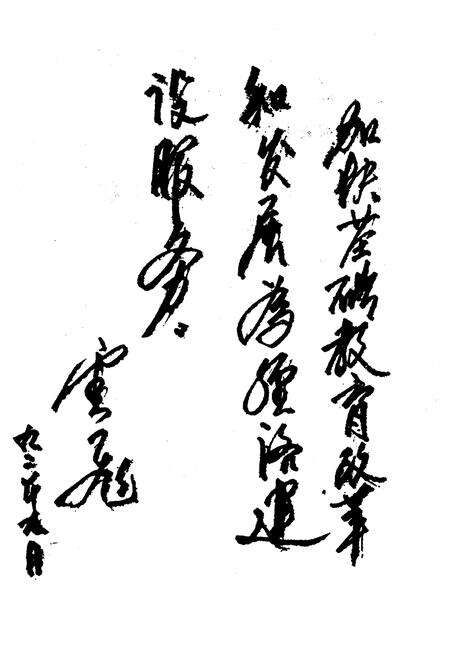 加快基础教育改革
和发展為經济建
设服务。
雲
九二年九月